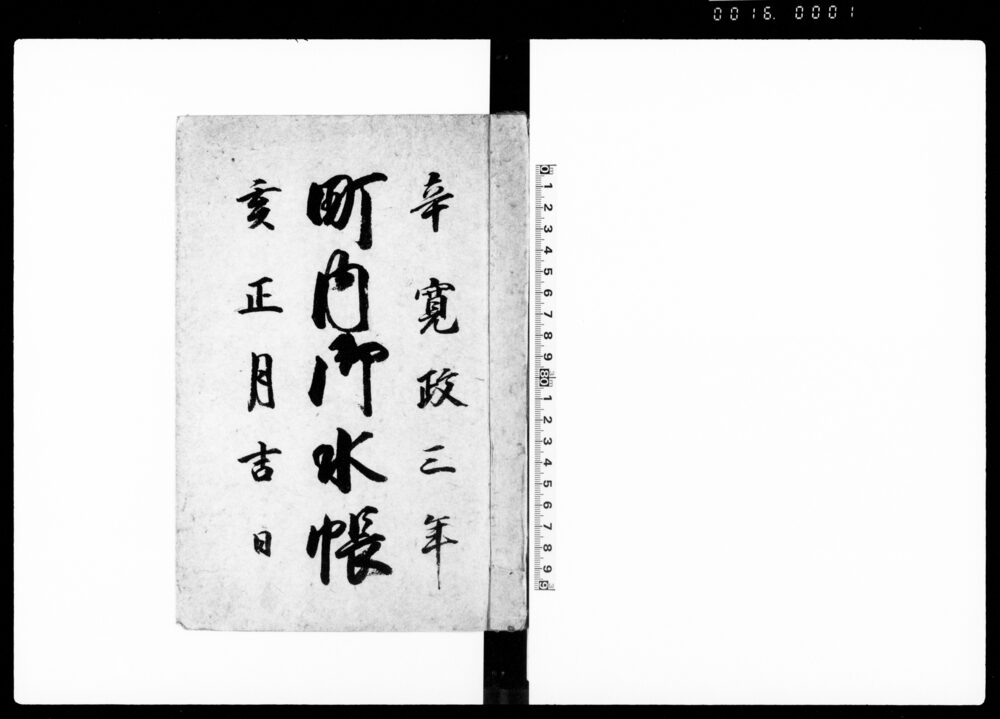 0016.0001
辛 寛政三年
町内御水帳
亥正月吉日
0 1 2 3 4 5 6 7 8 9 80 1 2 3 4 5 6 7 8 9 9